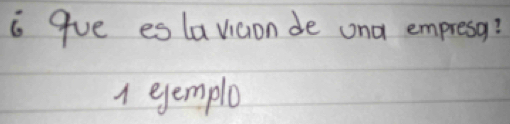 ¿ que es la vicion de una empresa?
1 ejemplo